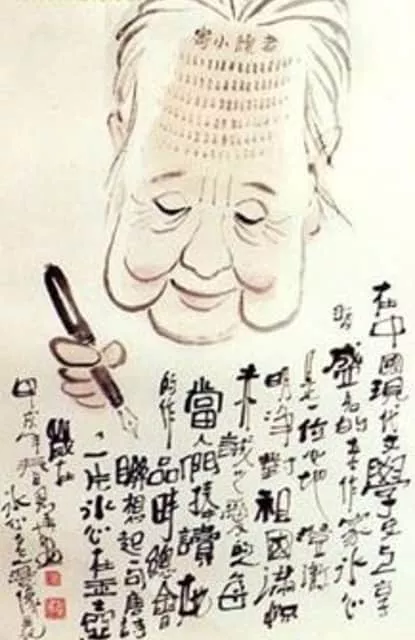 寄小讀者
在中國現代文學史上享
盛名的老作家冰心
是一位心地瑩澈
明淨對祖國滿懷
赤誠之愛的 每
當人們捧讀她
的作品時總會
聯想起一句唐詩
一片冰心在玉壺
甲戌年
冰心老人像